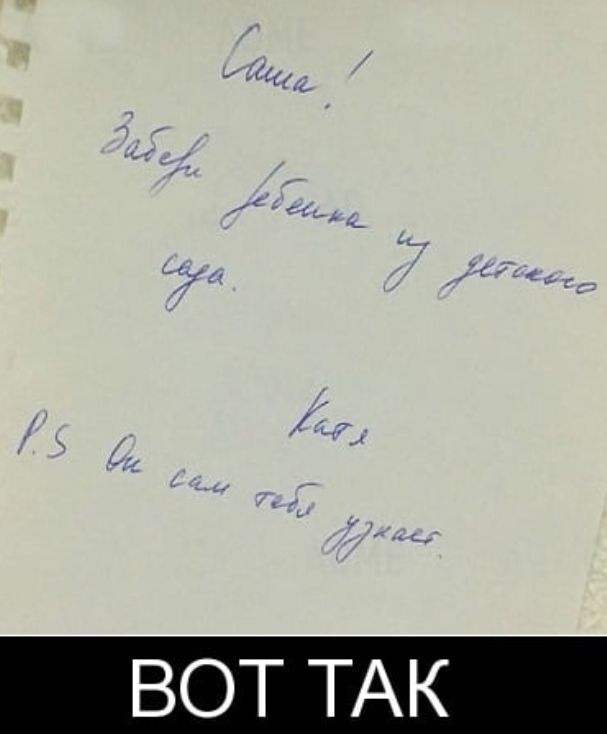 Саша!
Забери ребенка из детского
сада.
Катя
P.S Он сам тебя узнает.
ВОТ ТАК